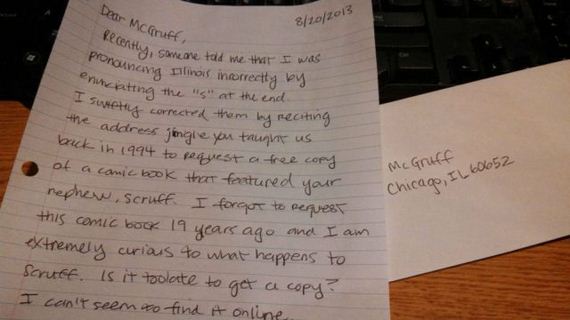 8/20/2013
Dear McGruff,
Recently, someone told me that I was
pronouncing Illinois incorrectly by
enunciating the "s" at the end.
I swiftly corrected them by reciting
the address jingle you taught us
back in 1994 to request a free copy
of a comic book that featured your
nephew, Scruff. I forgot to request
this comic book 19 years ago and I am
extremely curious to what happens to
Scruff. Is it too late to get a copy?
I can't seem to find it online.
McGruff
Chicago, IL 60652